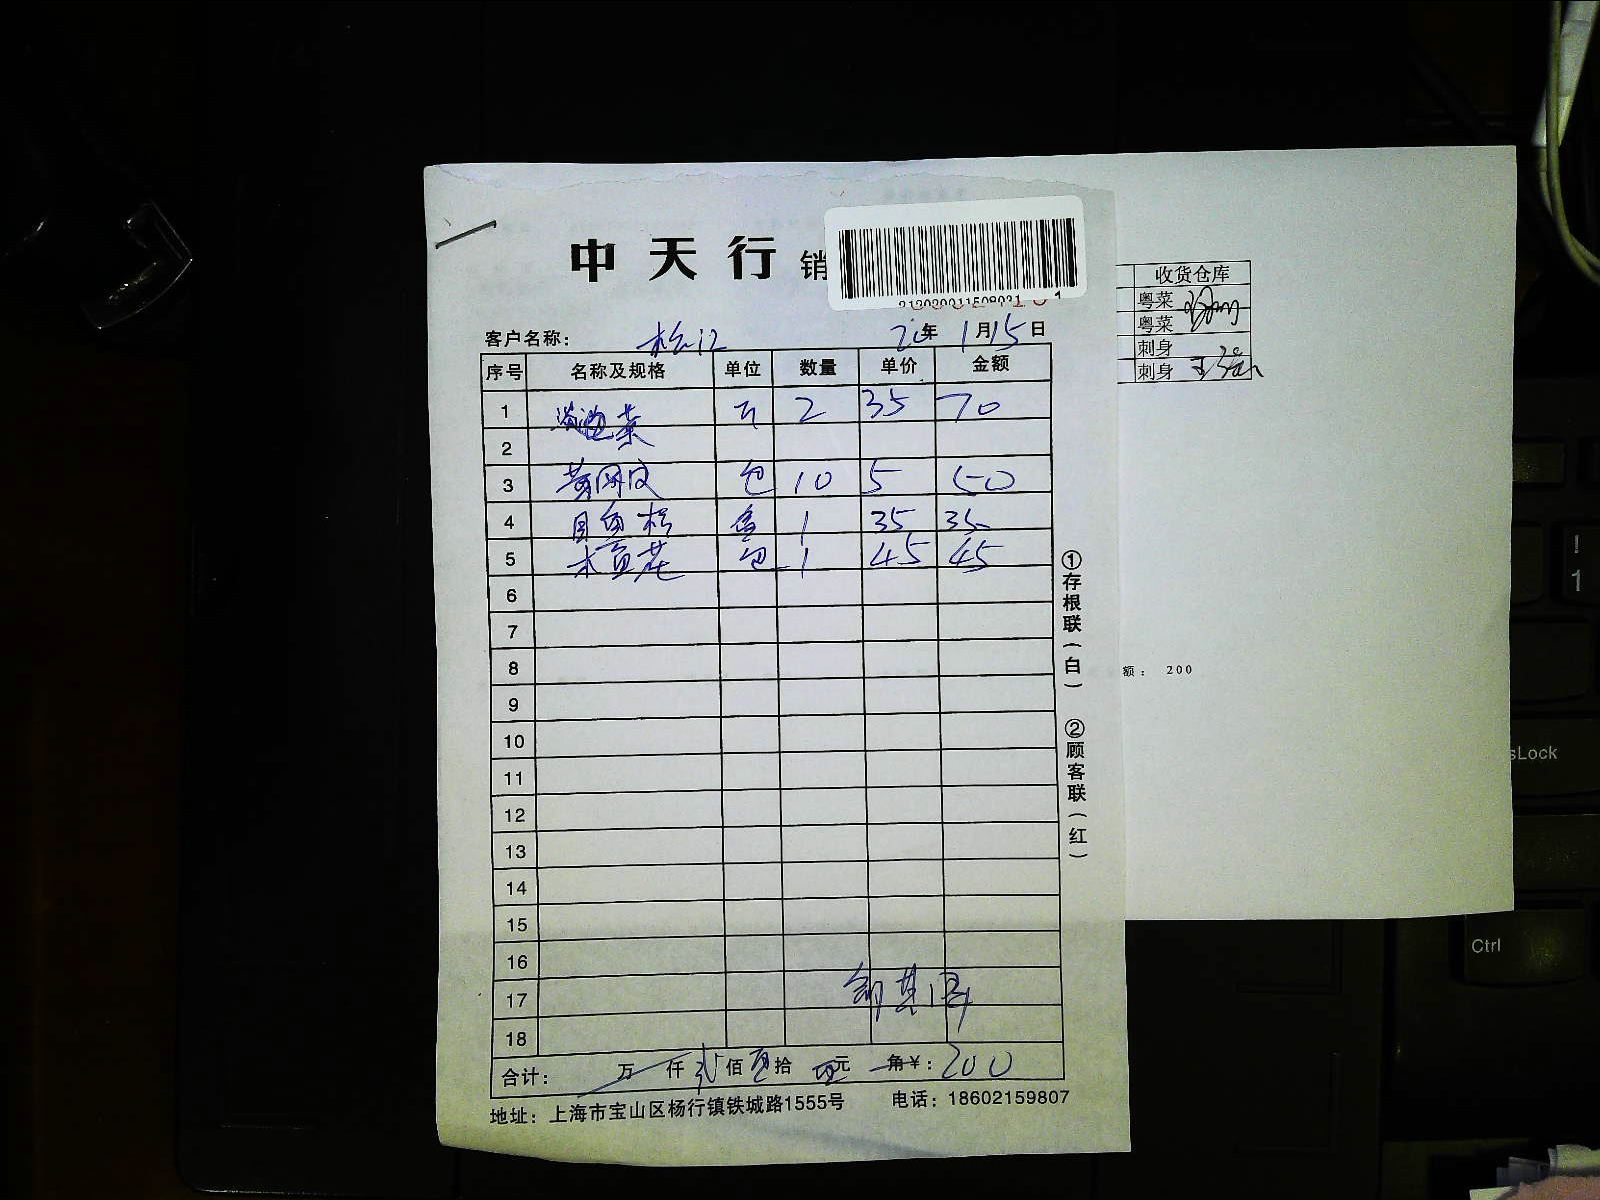 中天行 销
客户名称： 松江 20年 1月15日
序号 名称及规格 单位 数量 单价 金额
1 2 35 70
2
3 黄网皮 包 10 5 50
4 目鱼松 盒 1 35 35
5 木鱼花 包 1 45 45
6
7
8
9
10
11
12
13
14
15
16
17
18
合计： 万 仟 贰佰 零拾 零元 角¥：200
地址：上海市宝山区杨行镇铁城路1555号 电话：18602159807
①存根联（白） ②顾客联（红）
收货仓库
粤菜
粤菜
刺身
刺身
额： 200
sLock
!
1
Ctrl